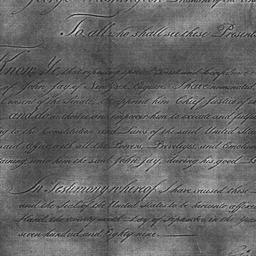 To all who shall see these Presents
Know Ye that reposing special Trust and Confidence
of John Jay of New York Esquire, I have nominated
Consent of the Senate, appointed him Chief Justice of the
and do authorize and empower him to execute and fulfil
ing to the Constitution and Laws of the said United States
said office, with all the Powers, Privileges, and Emoluments
taining, unto him the said John Jay, during his good B
In Testimony whereof, I have caused these
and the Seal of the United States to be hereunto affixed
Hand the twenty sixth Day of September, in the year
seven hundred and Eighty nine.